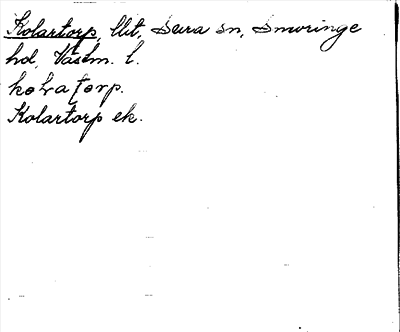 Kolartorp, llt, Sura sn, Snevringe
hd, Västm. l.
Kolartorp ek.